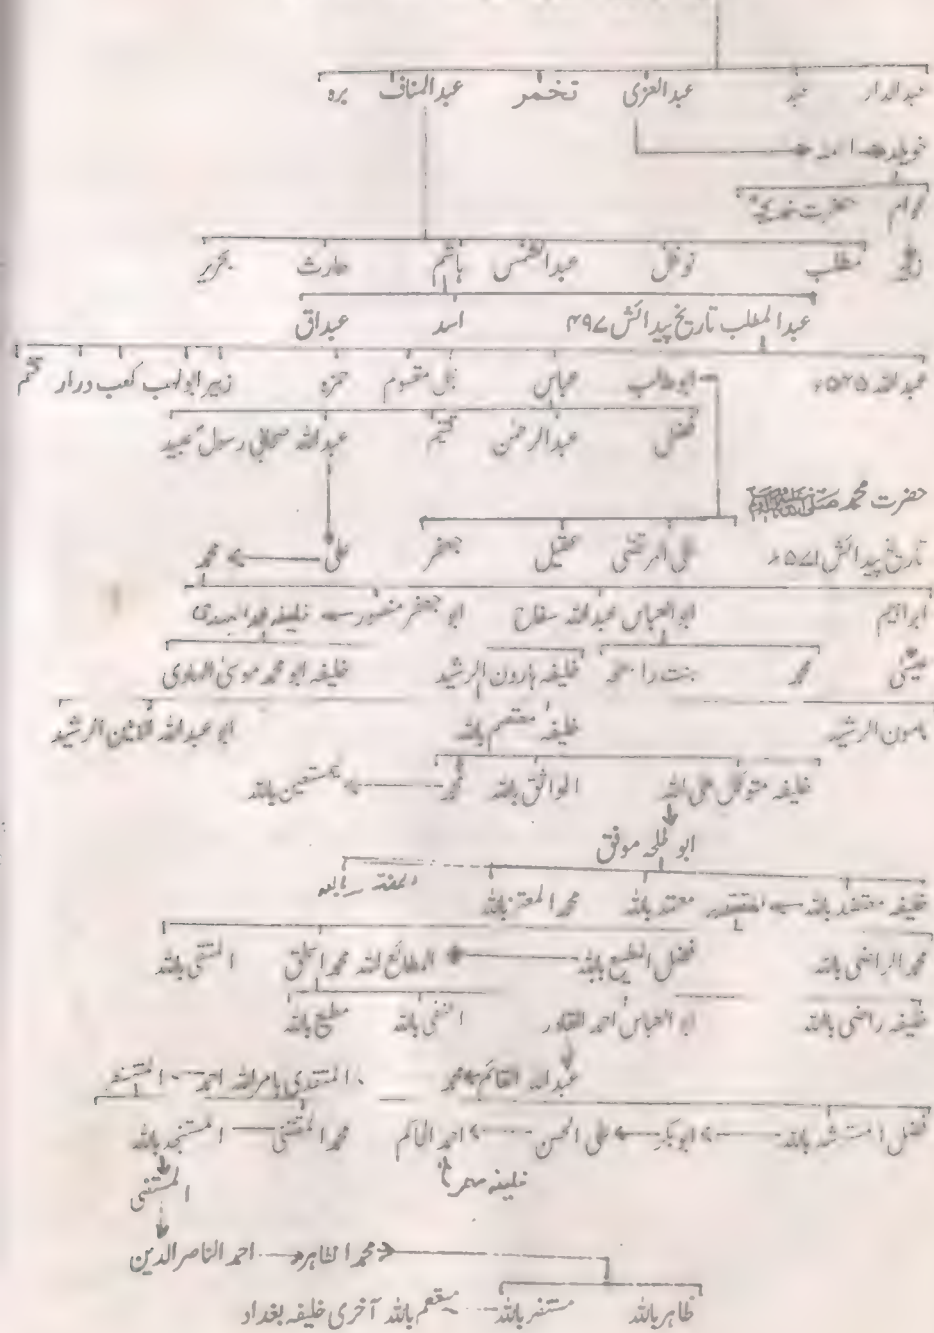 عبدالدار عبد عبدالعزی تخمر عبدالمناف برہ
خویلد اسد
عوام حضرت خدیجہؓ
زبیر مطلب نوفل عبدالشمس ہاشم حارث
عبدالمطلب تاریخ پیدائش ۴۹۷ء اسد عبداق
عبداللہ ۵۲۵ء ابوطالب عباس مقسوم حمزہ زبیر ابولہب کعب درار قثم
فضل عبدالرحمٰن قثیم عبداللہ صحابی رسولؐ عبید
حضرت محمد ﷺ
تاریخ پیدائش ۵۷۱ء علی المرتضٰی عقیل جعفر علی محمد
ابراہیم ابوالعباس عبداللہ سفاح ابو جعفر منصور خلیفہ محمد المہدی
عیسٰی محمد بنت خلیفہ ہارون الرشید خلیفہ ابو محمد موسیٰ الہادی
مامون الرشید خلیفہ معتصم باللہ ابو عبداللہ الامین الرشید
خلیفہ متوکل علی اللہ الواثق باللہ محمد مستعین باللہ
ابو طلحہ موفق
خلیفہ معتضد باللہ المقتدر معتمد باللہ محمد المعتز باللہ
محمد الراضی باللہ فضل المطیع باللہ الطائع للہ محمد اسحٰق المتقی باللہ
خلیفہ راضی باللہ ابوالعباس احمد القادر المتقی باللہ مطیع باللہ
عبداللہ القائم محمد المقتدی بامراللہ احمد
فضل المسترشد باللہ ابوبکر علی الحسن احمد الحاکم محمد المقتفی المستنجد باللہ
خلیفہ مصر المستضی
محمد الظاہر احمد الناصر الدین
ظاہر باللہ مستنصر باللہ مستعصم باللہ آخری خلیفہ بغداد